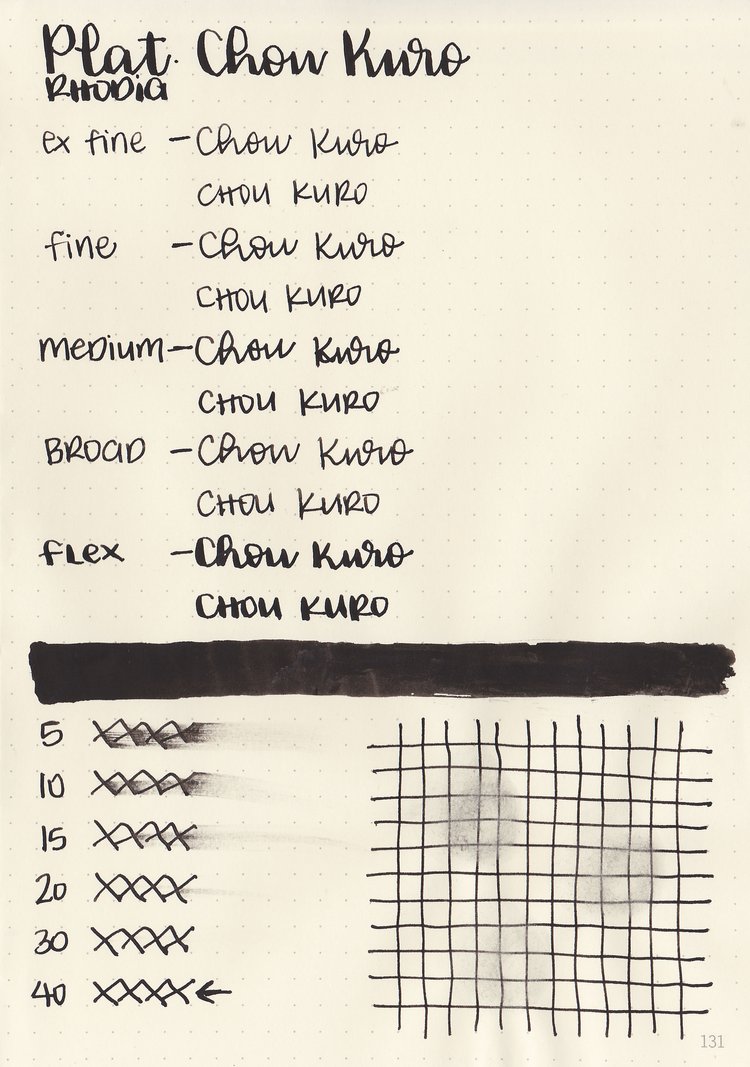 Plat. Chou Kuro
RHODIA
ex fine - Chou Kuro
CHOU KURO
fine - Chou Kuro
CHOU KURO
medium - Chou Kuro
CHOU KURO
BROAD - Chou Kuro
CHOU KURO
flex - Chou Kuro
CHOU KURO
5 XXXX
10 XXXX
15 XXXX
20 XXXX
30 XXXX
40 XXXX ←
131